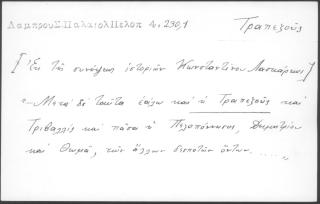 Λαμπρου:Παλαιολ Πελοπ 4. 230,1
Τραπεζοῦς
[Ἐκ τῆς συνόψεως ἱστοριῶν Κωνσταντίνου Λασκάρεως]
"— Μετὰ δὲ ταῦτα ἑάλω καὶ ἡ Τραπεζοῦς καὶ
Τριβαλλὶς καὶ πᾶσα ἡ Πελοπόννησος, Δημητρίου
καὶ Θωμᾶ, τῶν ἄλλων δεσποτῶν ὄντων....."